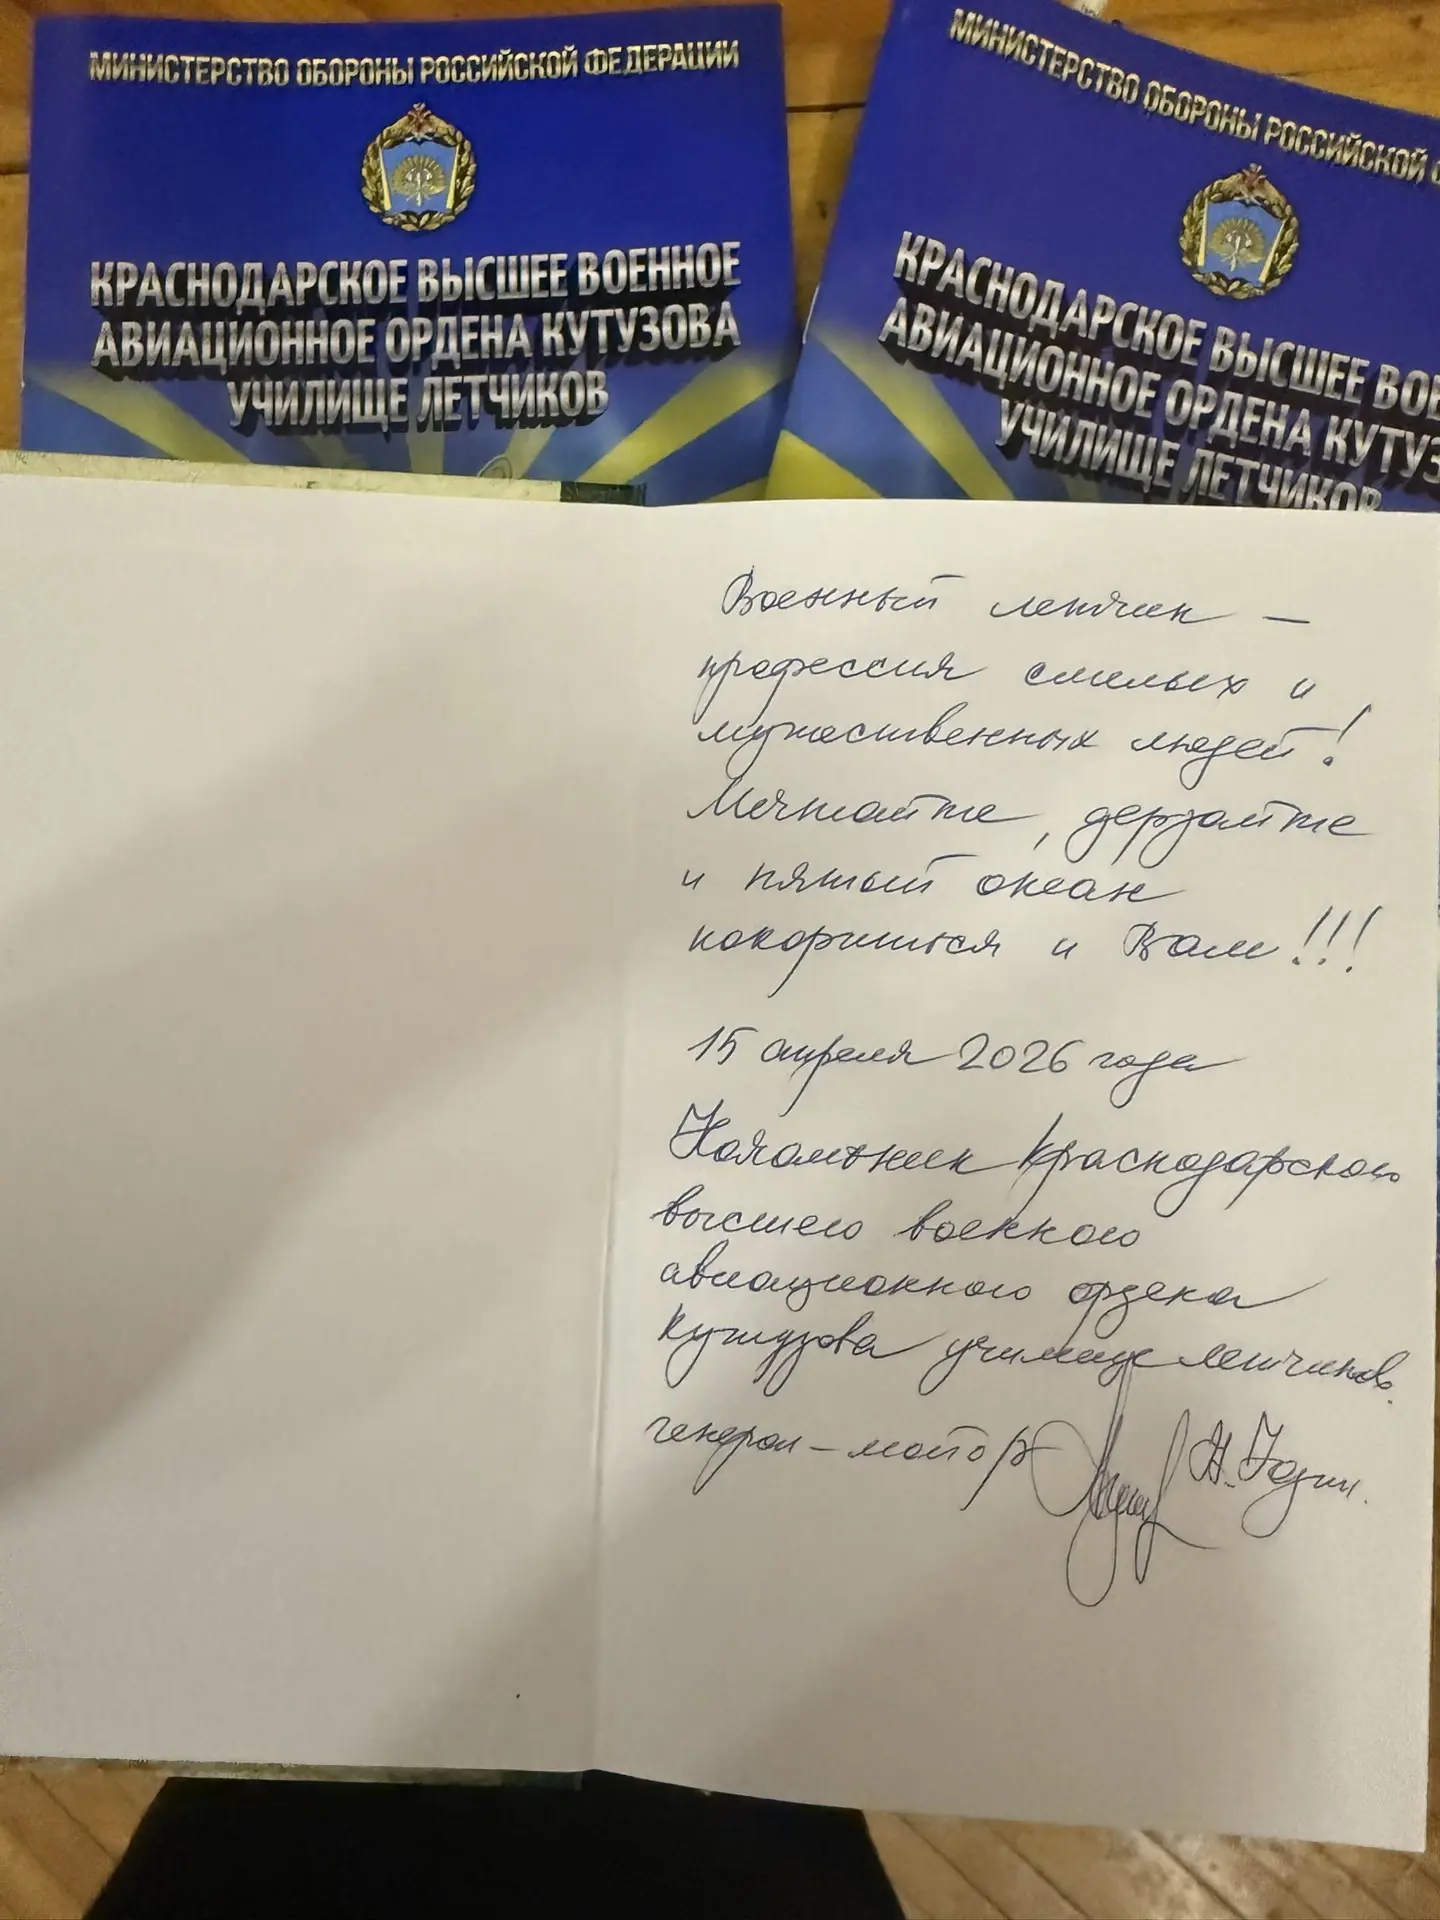 МИНИСТЕРСТВО ОБОРОНЫ РОССИЙСКОЙ ФЕДЕРАЦИИ
КРАСНОДАРСКОЕ ВЫСШЕЕ ВОЕННОЕ
АВИАЦИОННОЕ ОРДЕНА КУТУЗОВА
УЧИЛИЩЕ ЛЕТЧИКОВ
МИНИСТЕРСТВО ОБОРОНЫ РОССИЙСКОЙ
КРАСНОДАРСКОЕ ВЫСШЕЕ ВОЕ
АВИАЦИОННОЕ ОРДЕНА КУТУЗ
УЧИЛИЩЕ ЛЕТЧИКОВ
Военный летчик –
профессия смелых и
мужественных людей!
Мечтайте, дерзайте
и пятый океан
покорится и Вам!!!
15 апреля 2026 года
Начальник Краснодарского
высшего военного
авиационного ордена
Кутузова училища летчиков.
генерал-майор